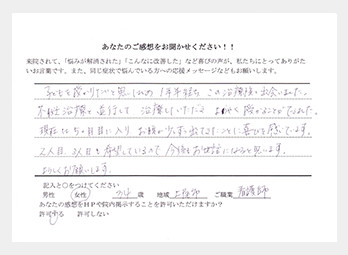 あなたのご感想をお聞かせください！！
来院されて、「悩みが解消された」「こんなに改善した」など喜びの声が、私たちにとってありがた
いお言葉です。また、同じ症状で悩んでいる方への応援メッセージなどもお願いします。
子どもを授かりたいと思い 1年半程 この治療院に出会いました。
不妊治療と並行して 治療していただき 授かることができました。
現在は5ヶ月目に入り お腹が少しずつ出てきたことに喜びを感じています。
2人目、3人目も希望しているので 今後もお世話になると思います。
よろしくお願いします。
記入と○をつけてください
男性 女性 歳 地域 ご職業 看護師
あなたの感想をＨＰや院内掲示することを許可いただけますか？
許可する 許可しない